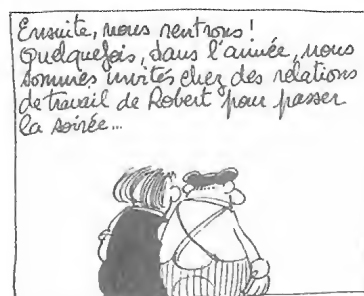 Ensuite, nous rentrons !
Quelquefois, dans l'année, nous
sommes invités chez des relations
de travail de Robert pour passer
la soirée...